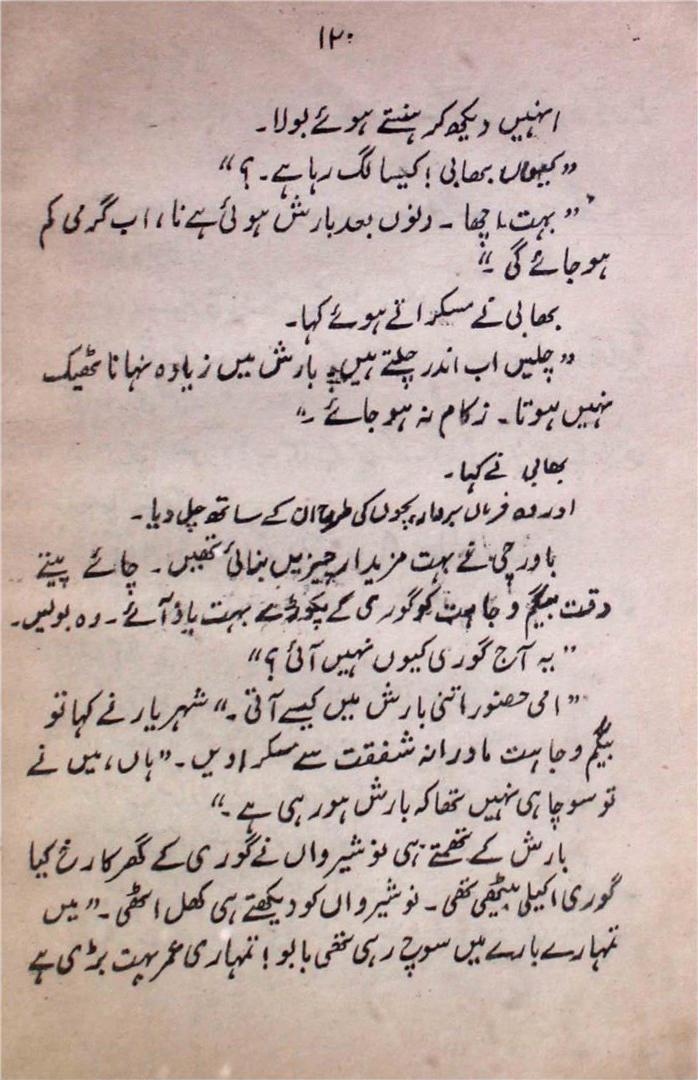 ۱۲۰
انہیں دیکھ کر ہنستے ہوئے بولا۔
”کیوں بھابی! کیسا لگ رہا ہے۔؟“
”بہت اچھا۔ دنوں بعد بارش ہوئی ہے نا، اب گرمی کم
ہو جائے گی۔“
بھابی نے مسکراتے ہوئے کہا۔
”چلیں اب اندر چلتے ہیں۔ بارش میں زیادہ نہانا ٹھیک
نہیں ہوتا۔ زکام نہ ہو جائے۔“
بھابی نے کہا۔
اور وہ فرماں بردار بچوں کی طرح ان کے ساتھ چل دیا۔
باورچی نے بہت مزیدار چیزیں بنائی تھیں۔ چائے پیتے
وقت بیگم وجاہت کو گوری کے پکوڑے بہت یاد آئے۔ وہ بولیں۔
”یہ آج گوری کیوں نہیں آئی؟“
”امی حضور اتنی بارش میں کیسے آتی۔“ شہریار نے کہا تو
بیگم وجاہت مادرانہ شفقت سے مسکرا دیں۔ ”ہاں، میں نے
تو سوچا ہی نہیں تھا کہ بارش ہو رہی ہے۔“
بارش کے تھمتے ہی نوشیرواں نے گوری کے گھر کا رخ کیا
گوری اکیلی بیٹھی تھی۔ نوشیرواں کو دیکھتے ہی کھل اٹھی۔ ”میں
تمہارے بارے میں سوچ رہی تھی بابو! تمہاری عمر بہت بڑی ہے